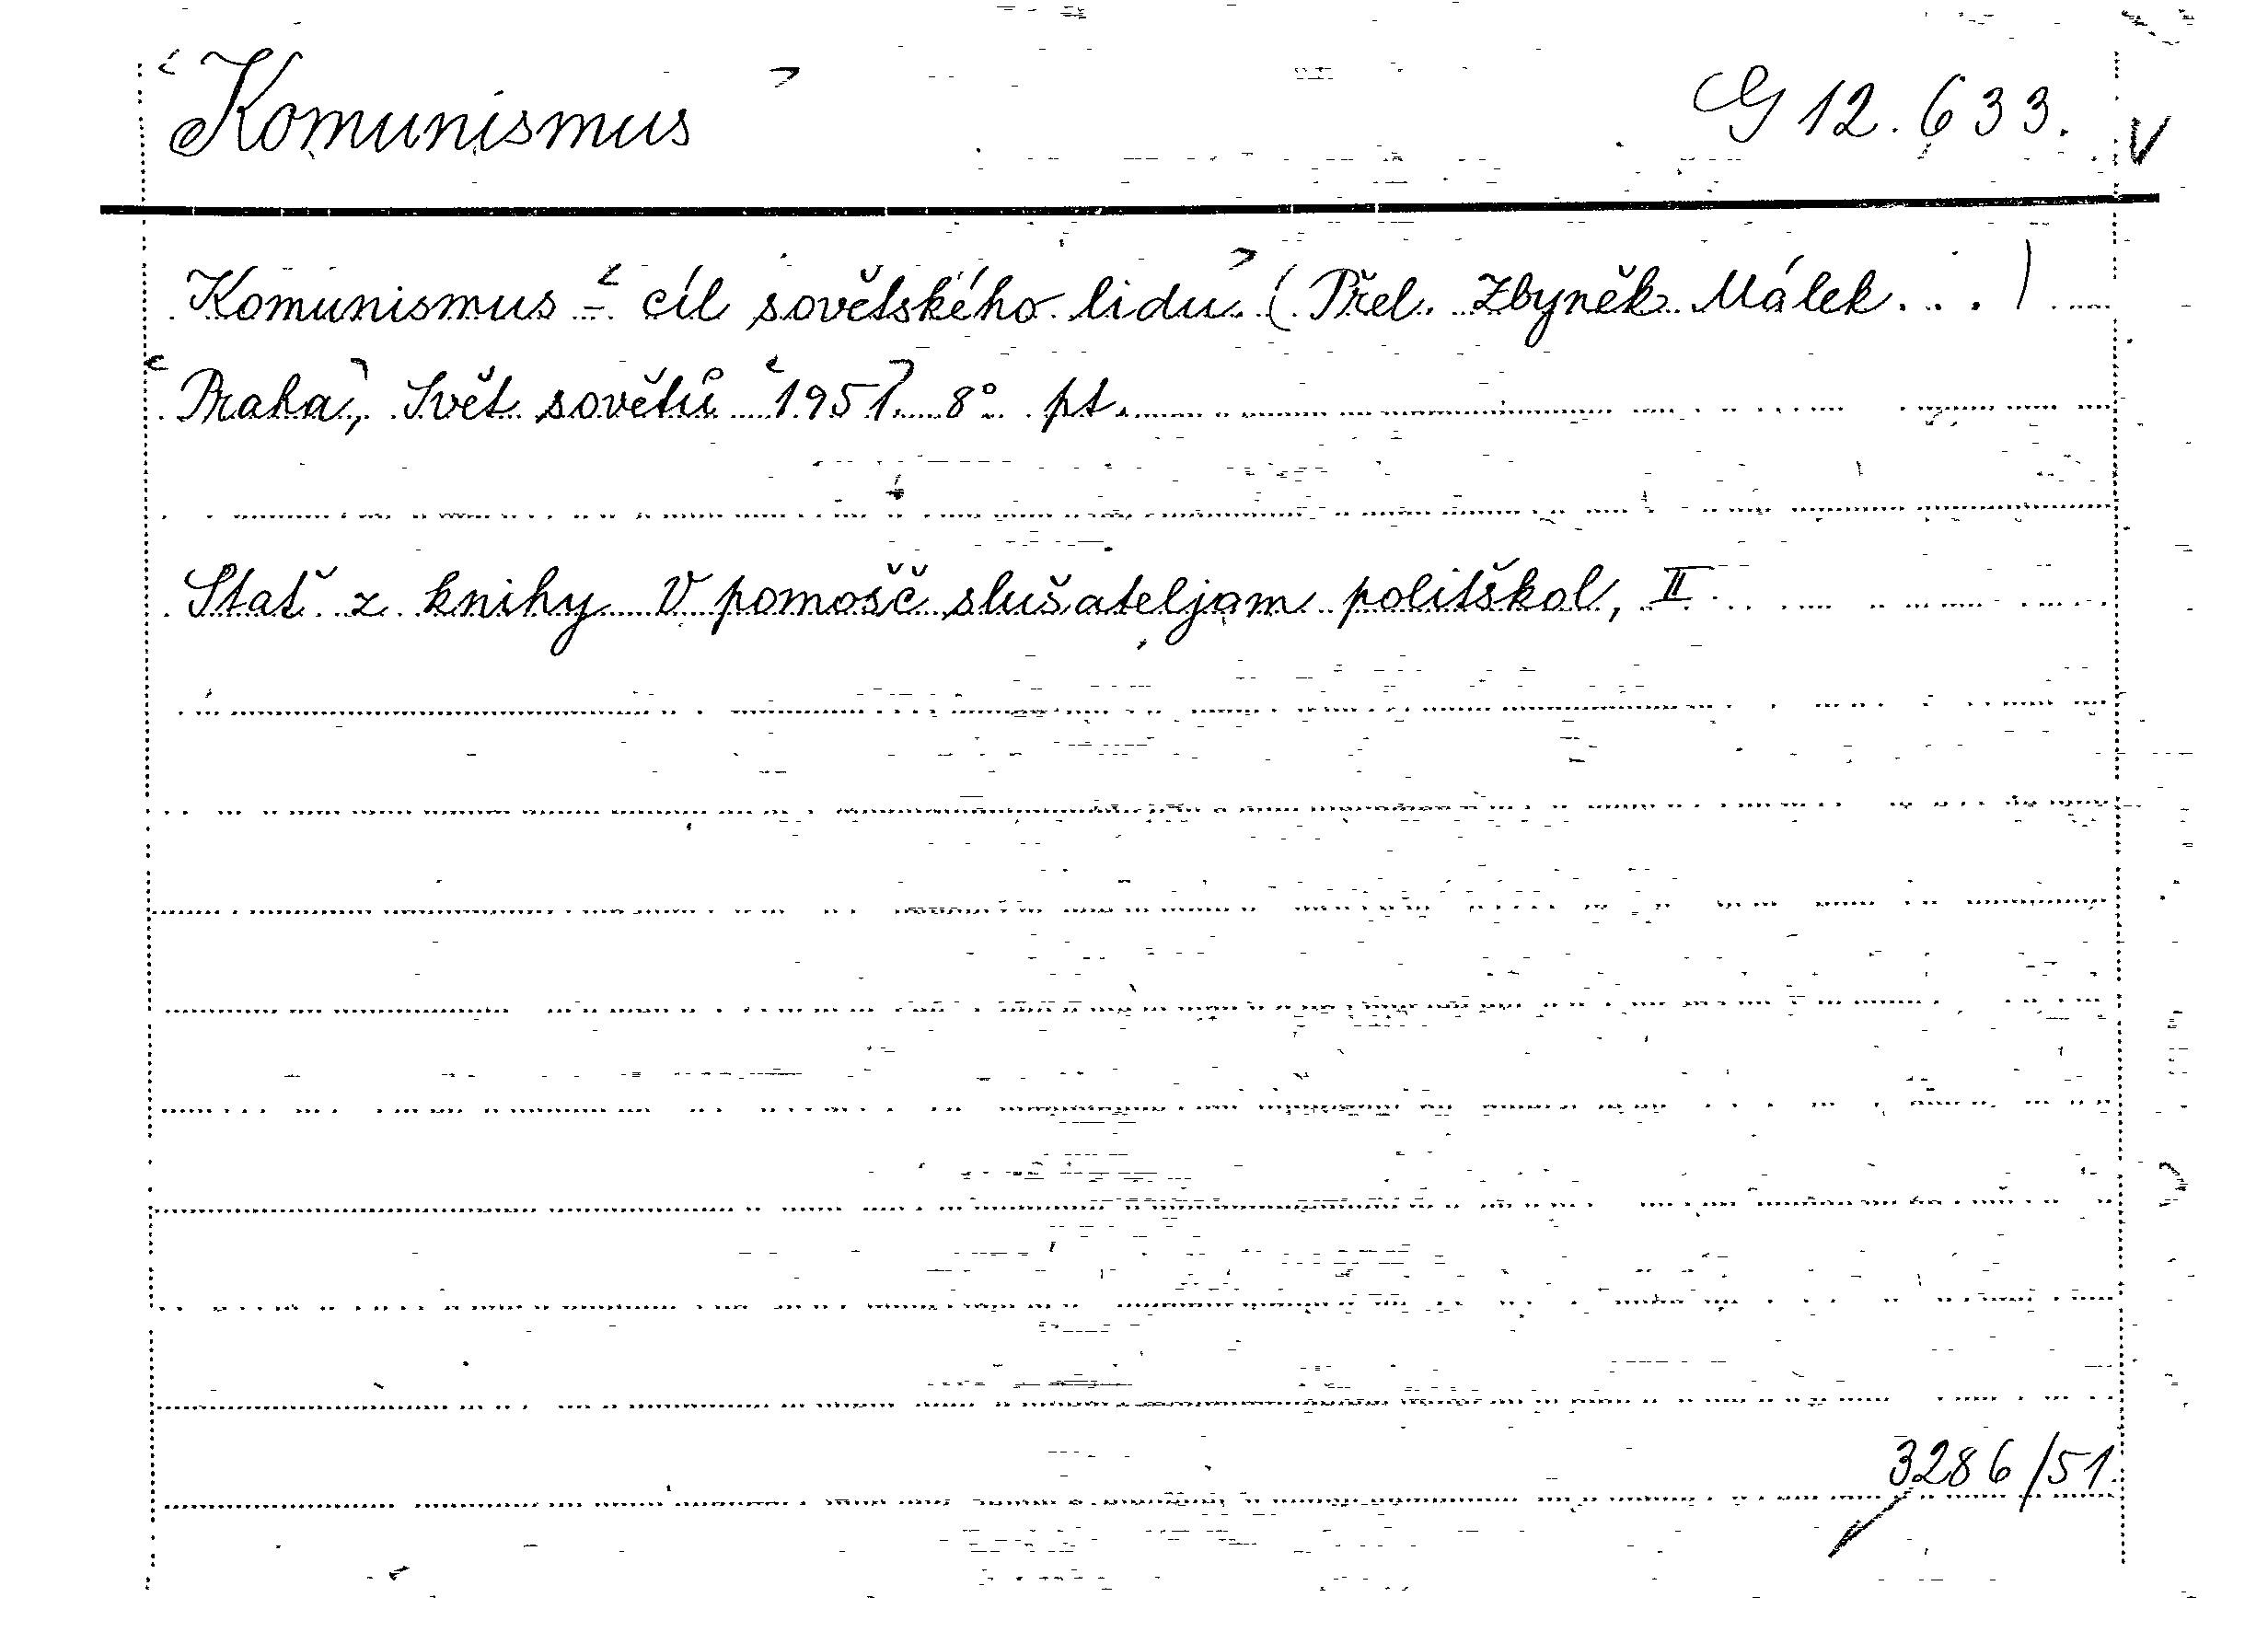 Komunismus G 12.633. V
Komunismus - cíl sovětského lidu. (Přel. Zbyněk Málek...)
Praha, Svět sovětů 1951. 8° pt.
Stať z knihy V pomošč slušateljam politškol, II.
3286/51.